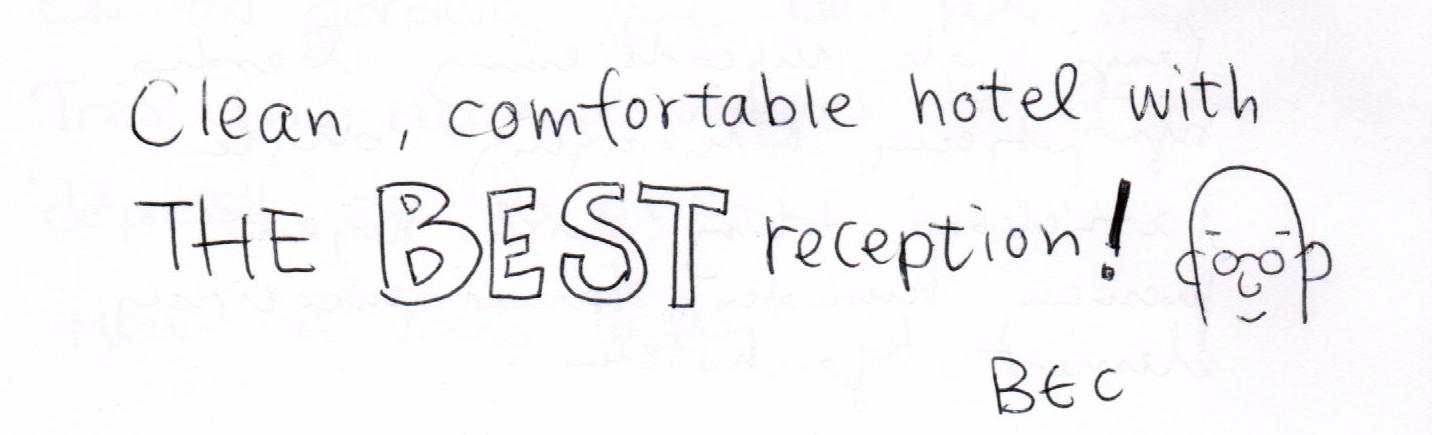 Clean, comfortable hotel with
THE BEST reception!
BEC